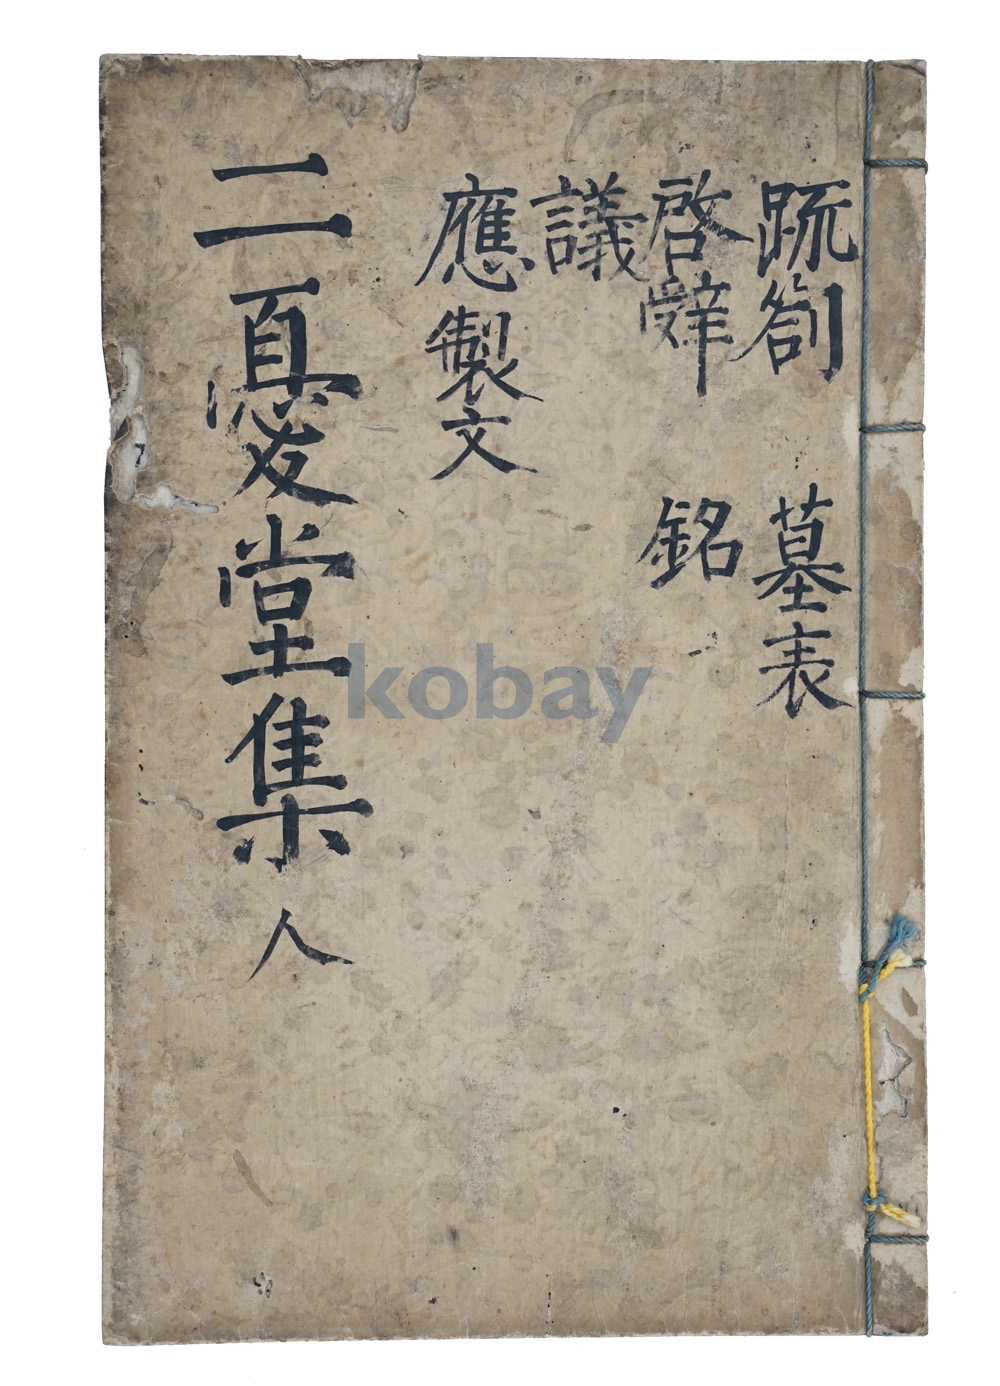 䟽箚 墓表
啓辭 銘
議
應製文
二憂堂集 人
kobay